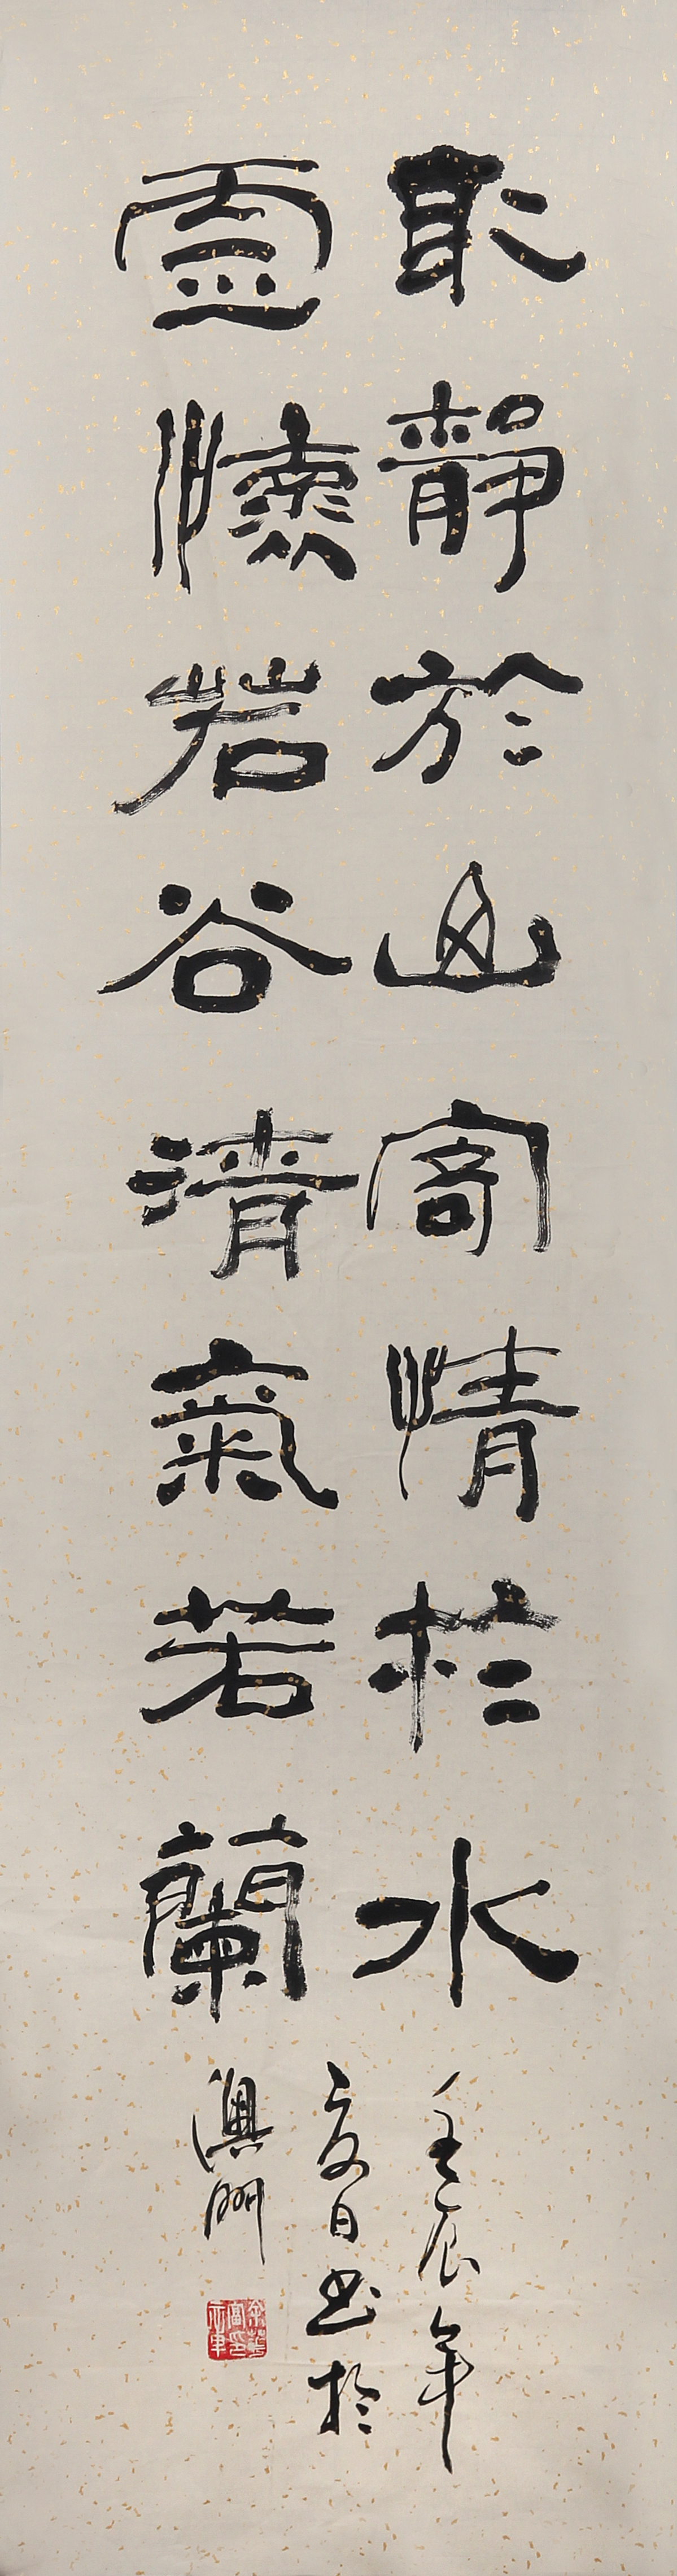 取靜於山寄情於水
虛懷若谷清氣若蘭
壬辰年
夏日書於
澳門